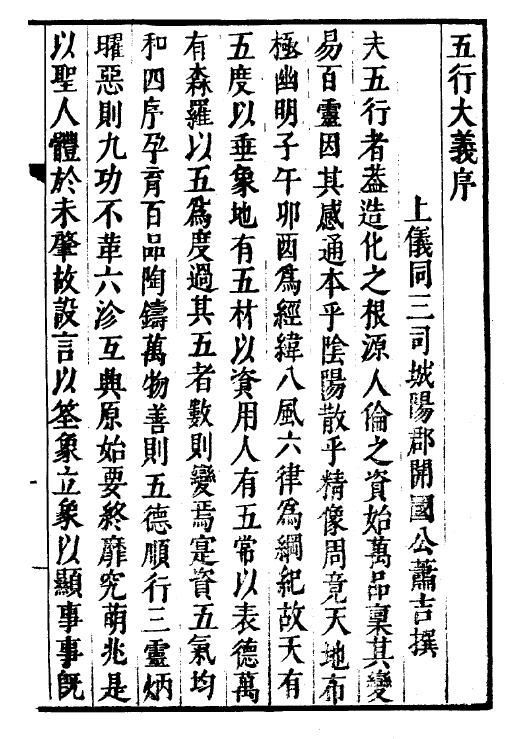 五行大義序
上儀同三司城陽郡開國公蕭吉撰
夫五行者葢造化之根源人倫之資始萬品稟其變
易百靈因其感通本乎陰陽散乎精像周竟天地布
極幽明子午卯酉爲經緯八風六律爲綱紀故天有
五度以垂象地有五材以資用人有五常以表德萬
有森羅以五爲度過其五者數則變焉寔資五氣均
和四序孕育百品陶鑄萬物善則五德順行三靈炳
曜惡則九功不革六沴互興原始要終靡究萌兆是
以聖人體於未肇故設言以筌象立象以顯事事旣